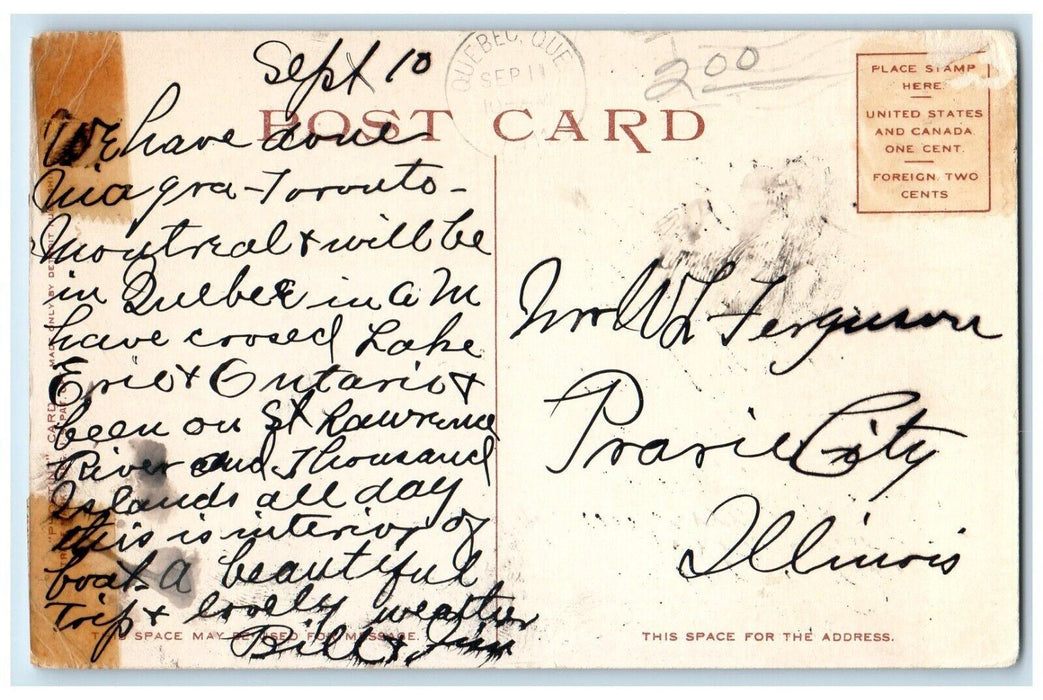 Sept 10
QUEBEC, QUE
SEP 11
2 00
POST CARD
PLACE STAMP
HERE
UNITED STATES
AND CANADA
ONE CENT.
FOREIGN, TWO
CENTS
We have done
Niagra - Toronto -
Montreal & will be
in Quebec in a m
have crossed Lake
Erie & Ontario &
been on St Lawrence
River and Thousand
Islands all day
this is interior of
boat. A beautiful
trip & lovely weather
Bill &
W L Ferguson
Prarie City
Illinois
THIS SPACE MAY BE USED FOR MESSAGE.
THIS SPACE FOR THE ADDRESS.